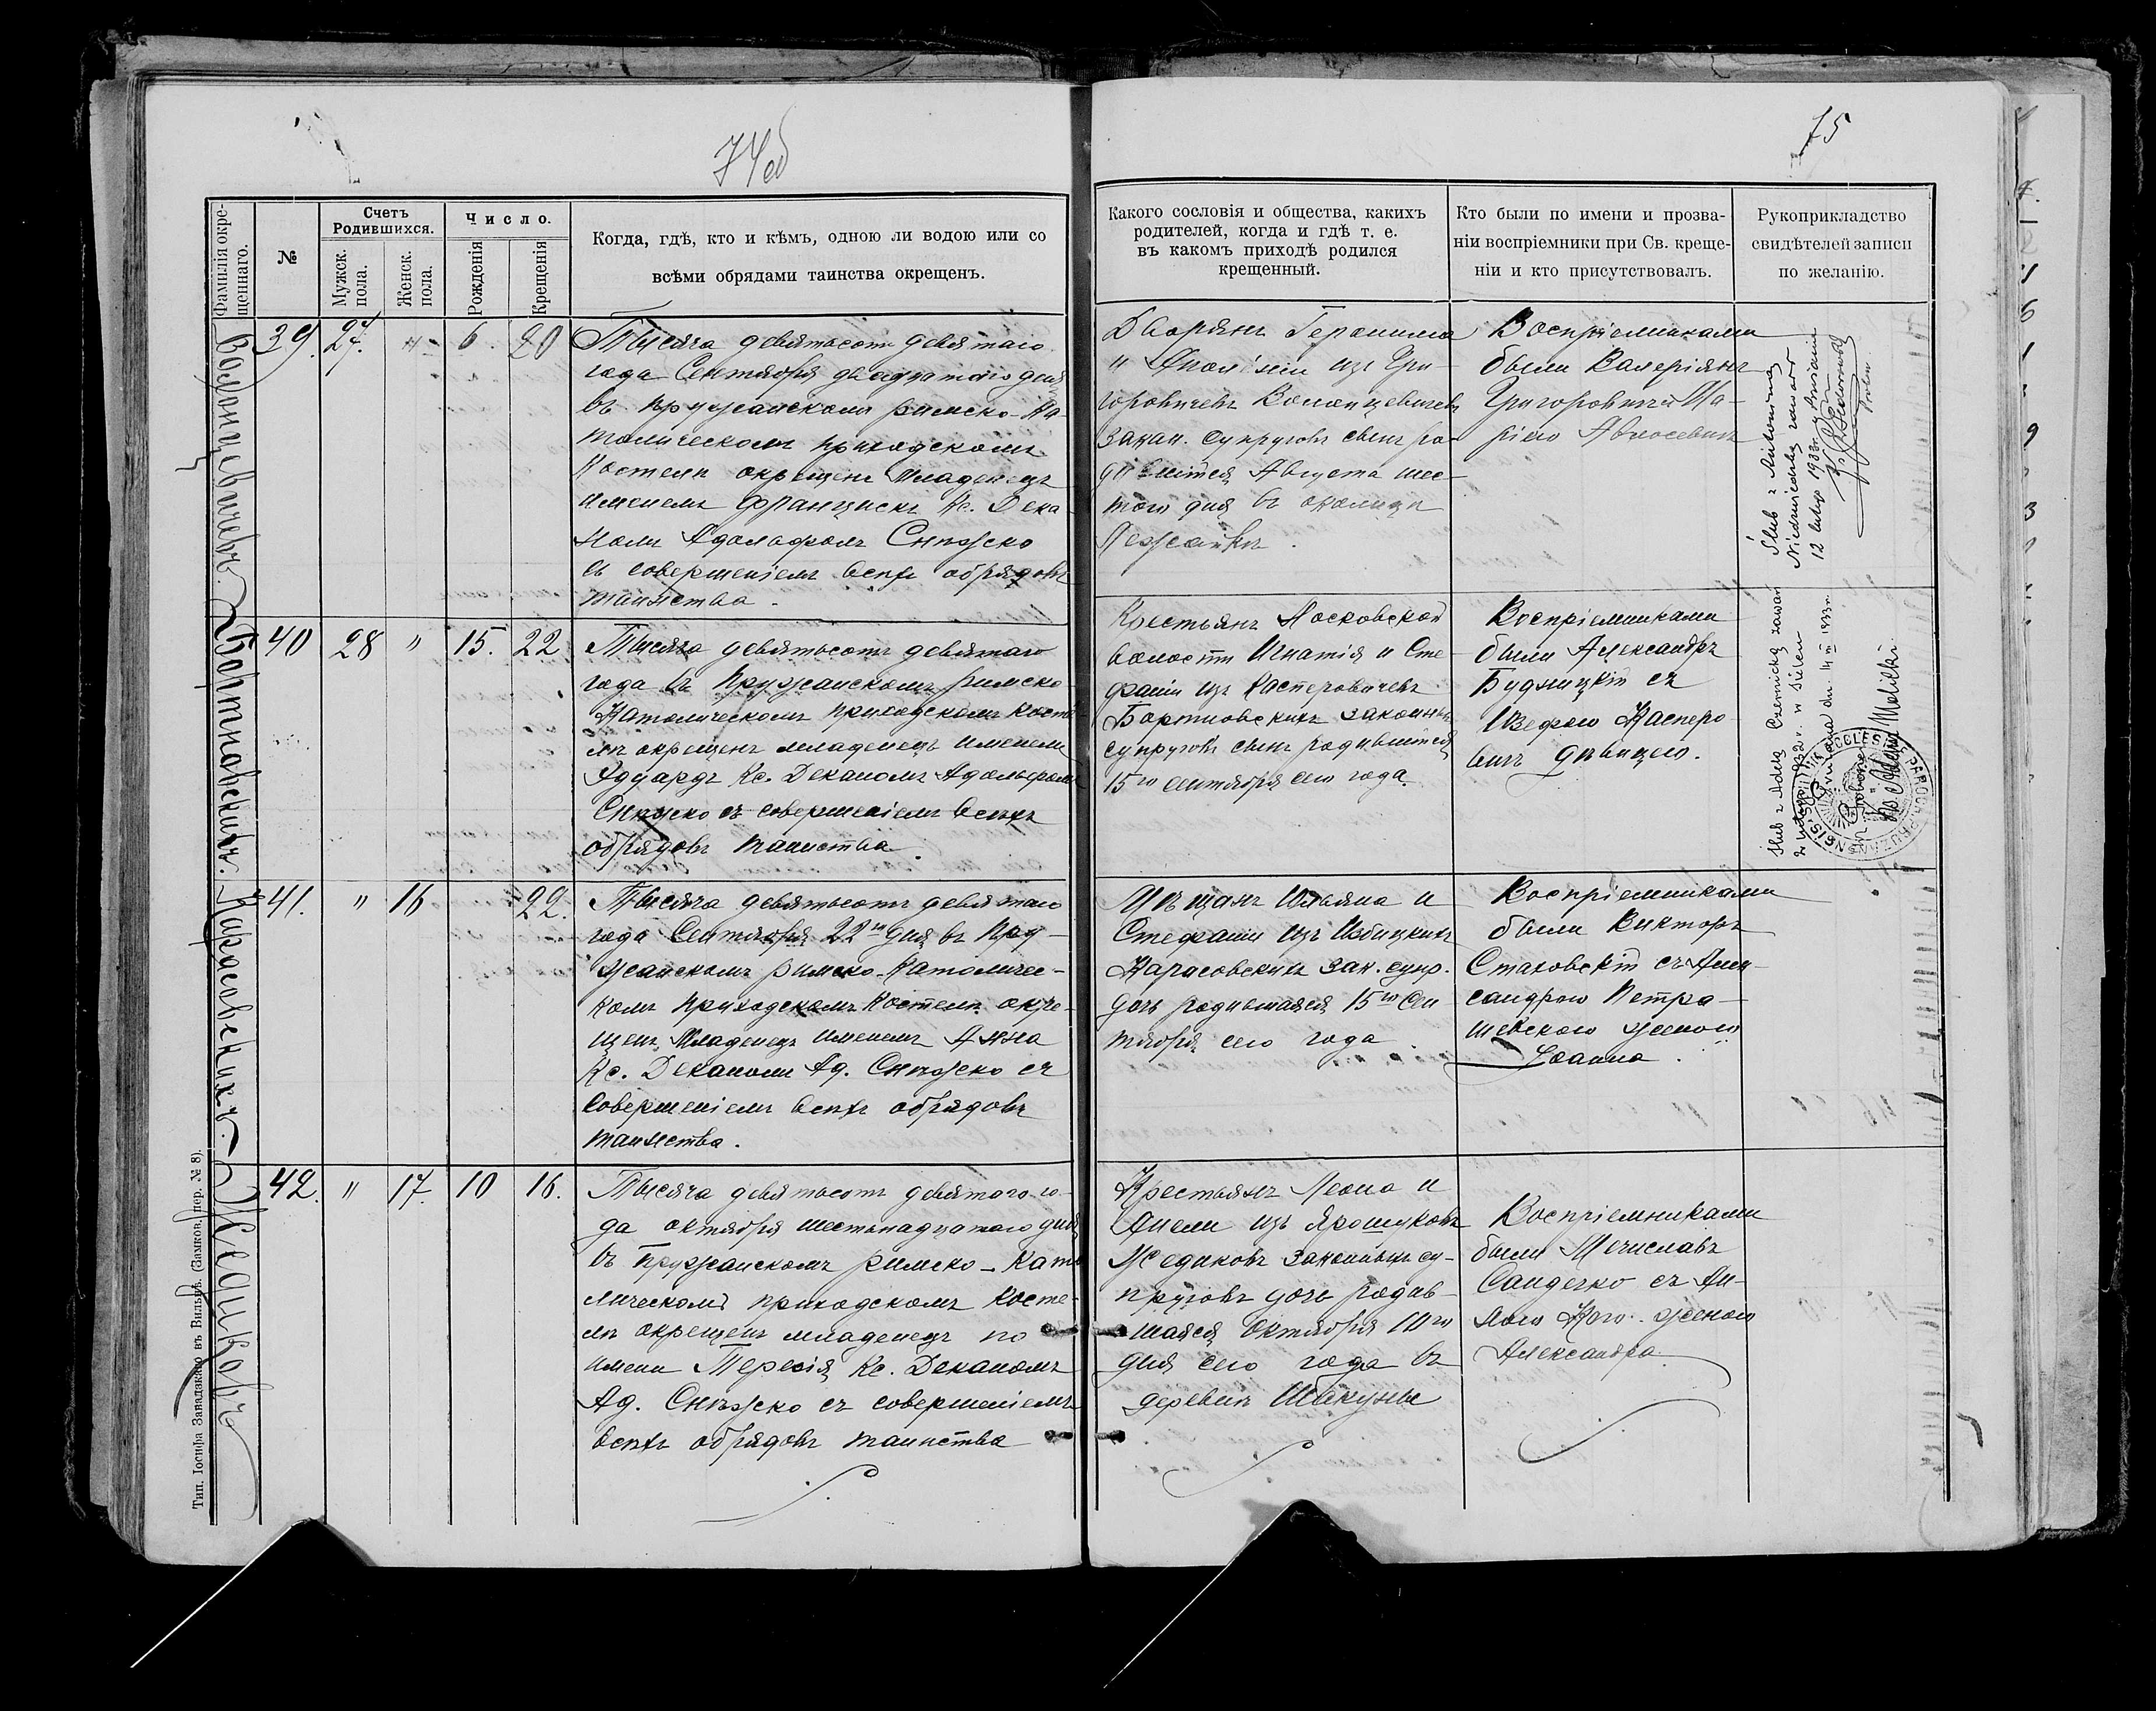 74об
75
Фамилія окре-
щеннаго.
№
Счетъ
Родившихся.
Мужск.
пола.
Женск.
пола.
Число.
Рожденія
Крещенія
Когда, гдѣ, кто и кѣмъ, одною ли водою или со
всѣми обрядами таинства окрещенъ.
Какого сословія и общества, какихъ
родителей, когда и гдѣ т. е.
въ какомъ приходѣ родился
крещенный.
Кто были по имени и прозва-
ніи воспріемники при Св. креще-
ніи и кто присутствовалъ.
Рукоприкладство
свидѣтелей записи
по желанію.
Волонцевичевъ.
39. 27. " 6. 20
Тысяча девятьсотъ девятаго
года Сентября двадцатого дня
въ Пружанскомъ римско-ка-
толическомъ приходскомъ
костелѣ окрещенъ младенецъ
именемъ Францискъ Кс. Дека-
номъ Адольфомъ Снѣжко
съ совершеніемъ всѣхъ обрядовъ
таинства.
Дворянъ Геронима
и Аполоніи изъ Гри-
горовичевъ Волонцевичевъ
закон. супруговъ сынъ ро-
дившійся Августа шес-
того дня въ околицѣ
Воспріемниками
были Валеріянъ
Григоровичъ
Ślub z Antoniną
Niedźwiedzką zawarł
12 lutego 1933 r.
Бартновскихъ.
40 28 " 15. 22
Тысяча девятьсотъ девятаго
года въ Пружанскомъ римско-
Католическомъ приходскомъ косте-
лѣ окрещенъ младенецъ именемъ
Эдуардъ Кс. Деканомъ Адольфомъ
Снѣжко съ совершеніемъ всѣхъ
обрядовъ таинства.
Крестьянъ Носковской
волости Игнатія и Сте-
фаніи изъ Касперовичевъ
Бартновскихъ законныхъ
супруговъ сынъ родившійся
15го сентября сего года.
Воспріемниками
были Александръ
Будзицкій съ
Юзефою Касперо-
вичъ дѣвицею.
Ślub z Adelą Czernicką zawarł
2 lutego 1932 r. w Sielcu
Prużana dn. 14 III 1933 r.
Proboszcz
Карасовскихъ.
41. " 16 22.
Тысяча девятьсотъ девятаго
года Сентября 22го дня въ Пру-
жанскомъ римско-Католичес-
комъ приходскомъ костелѣ окре-
щенъ младенецъ именемъ Анна
Кс. Деканомъ Ад. Снѣжко съ
совершеніемъ всѣхъ обрядовъ
таинства.
Мѣщанъ Юльяна и
Стефаніи изъ Избицкихъ
Карасовскихъ зак. супр.
дочь родившаяся 15го Сен-
тября сего года
Воспріемниками
были Викторъ
Стаховскій съ Алек-
сандрою Петра-
шевскою женою
Іоанна.
Жедиковъ
42. " 17. 10 16.
Тысяча девятьсотъ девятого го-
да октября шестьнадцатого дня
въ Пружанскомъ римско-Като-
лическомъ приходскомъ косте-
лѣ окрещенъ младенецъ по
имени Тересія Кс. Деканомъ
Ад. Снѣжко съ совершеніемъ
всѣхъ обрядовъ таинства
Крестьянъ Леона и
Анели изъ Ярошуковъ
Жедиковъ законныхъ су-
пруговъ дочь родив-
шаяся Октября 10го
дня сего года въ
деревнѣ Шакуны
Воспріемниками
были Мечиславъ
Сандечко съ Ан-
ною женою
Александра.
Тип. Іосифа Завадзкаго въ Вильнѣ. (Замков. пер. № 8).